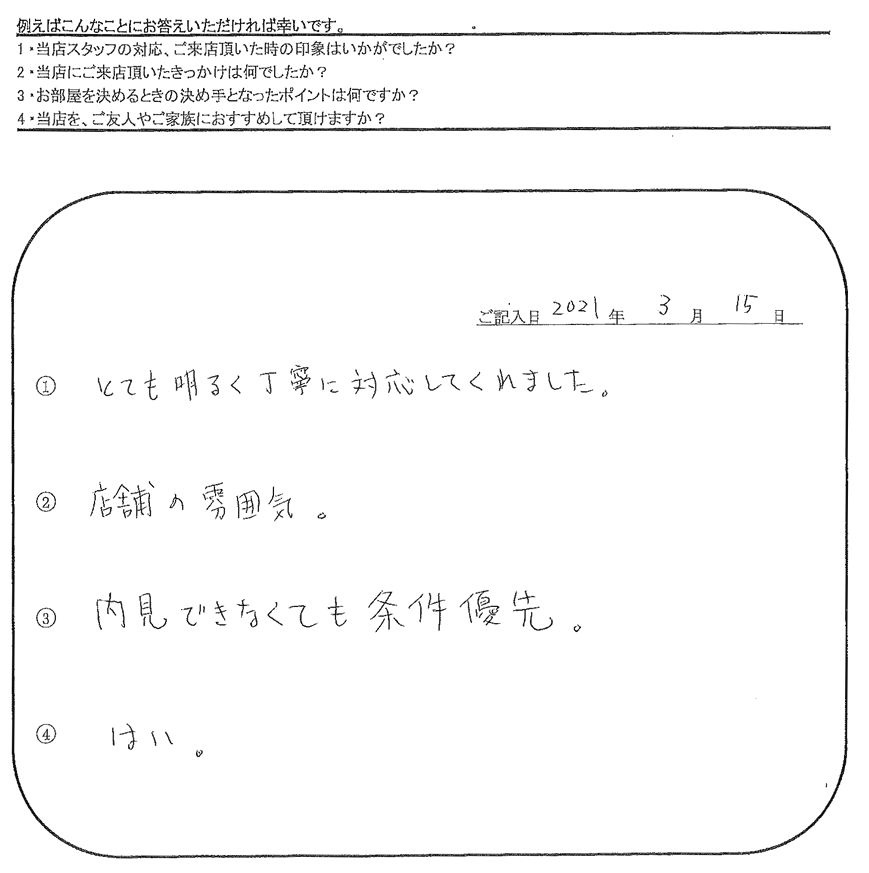 例えばこんなことにお答えいただければ幸いです。
1・当店スタッフの対応、ご来店頂いた時の印象はいかがでしたか？
2・当店にご来店頂いたきっかけは何でしたか？
3・お部屋を決めるときの決め手となったポイントは何ですか？
4・当店を、ご友人やご家族におすすめして頂けますか？
ご記入日 2021 年 3 月 15 日
① とても明るく丁寧に対応してくれました。
② 店舗の雰囲気。
③ 内見できなくても条件優先。
④ はい。